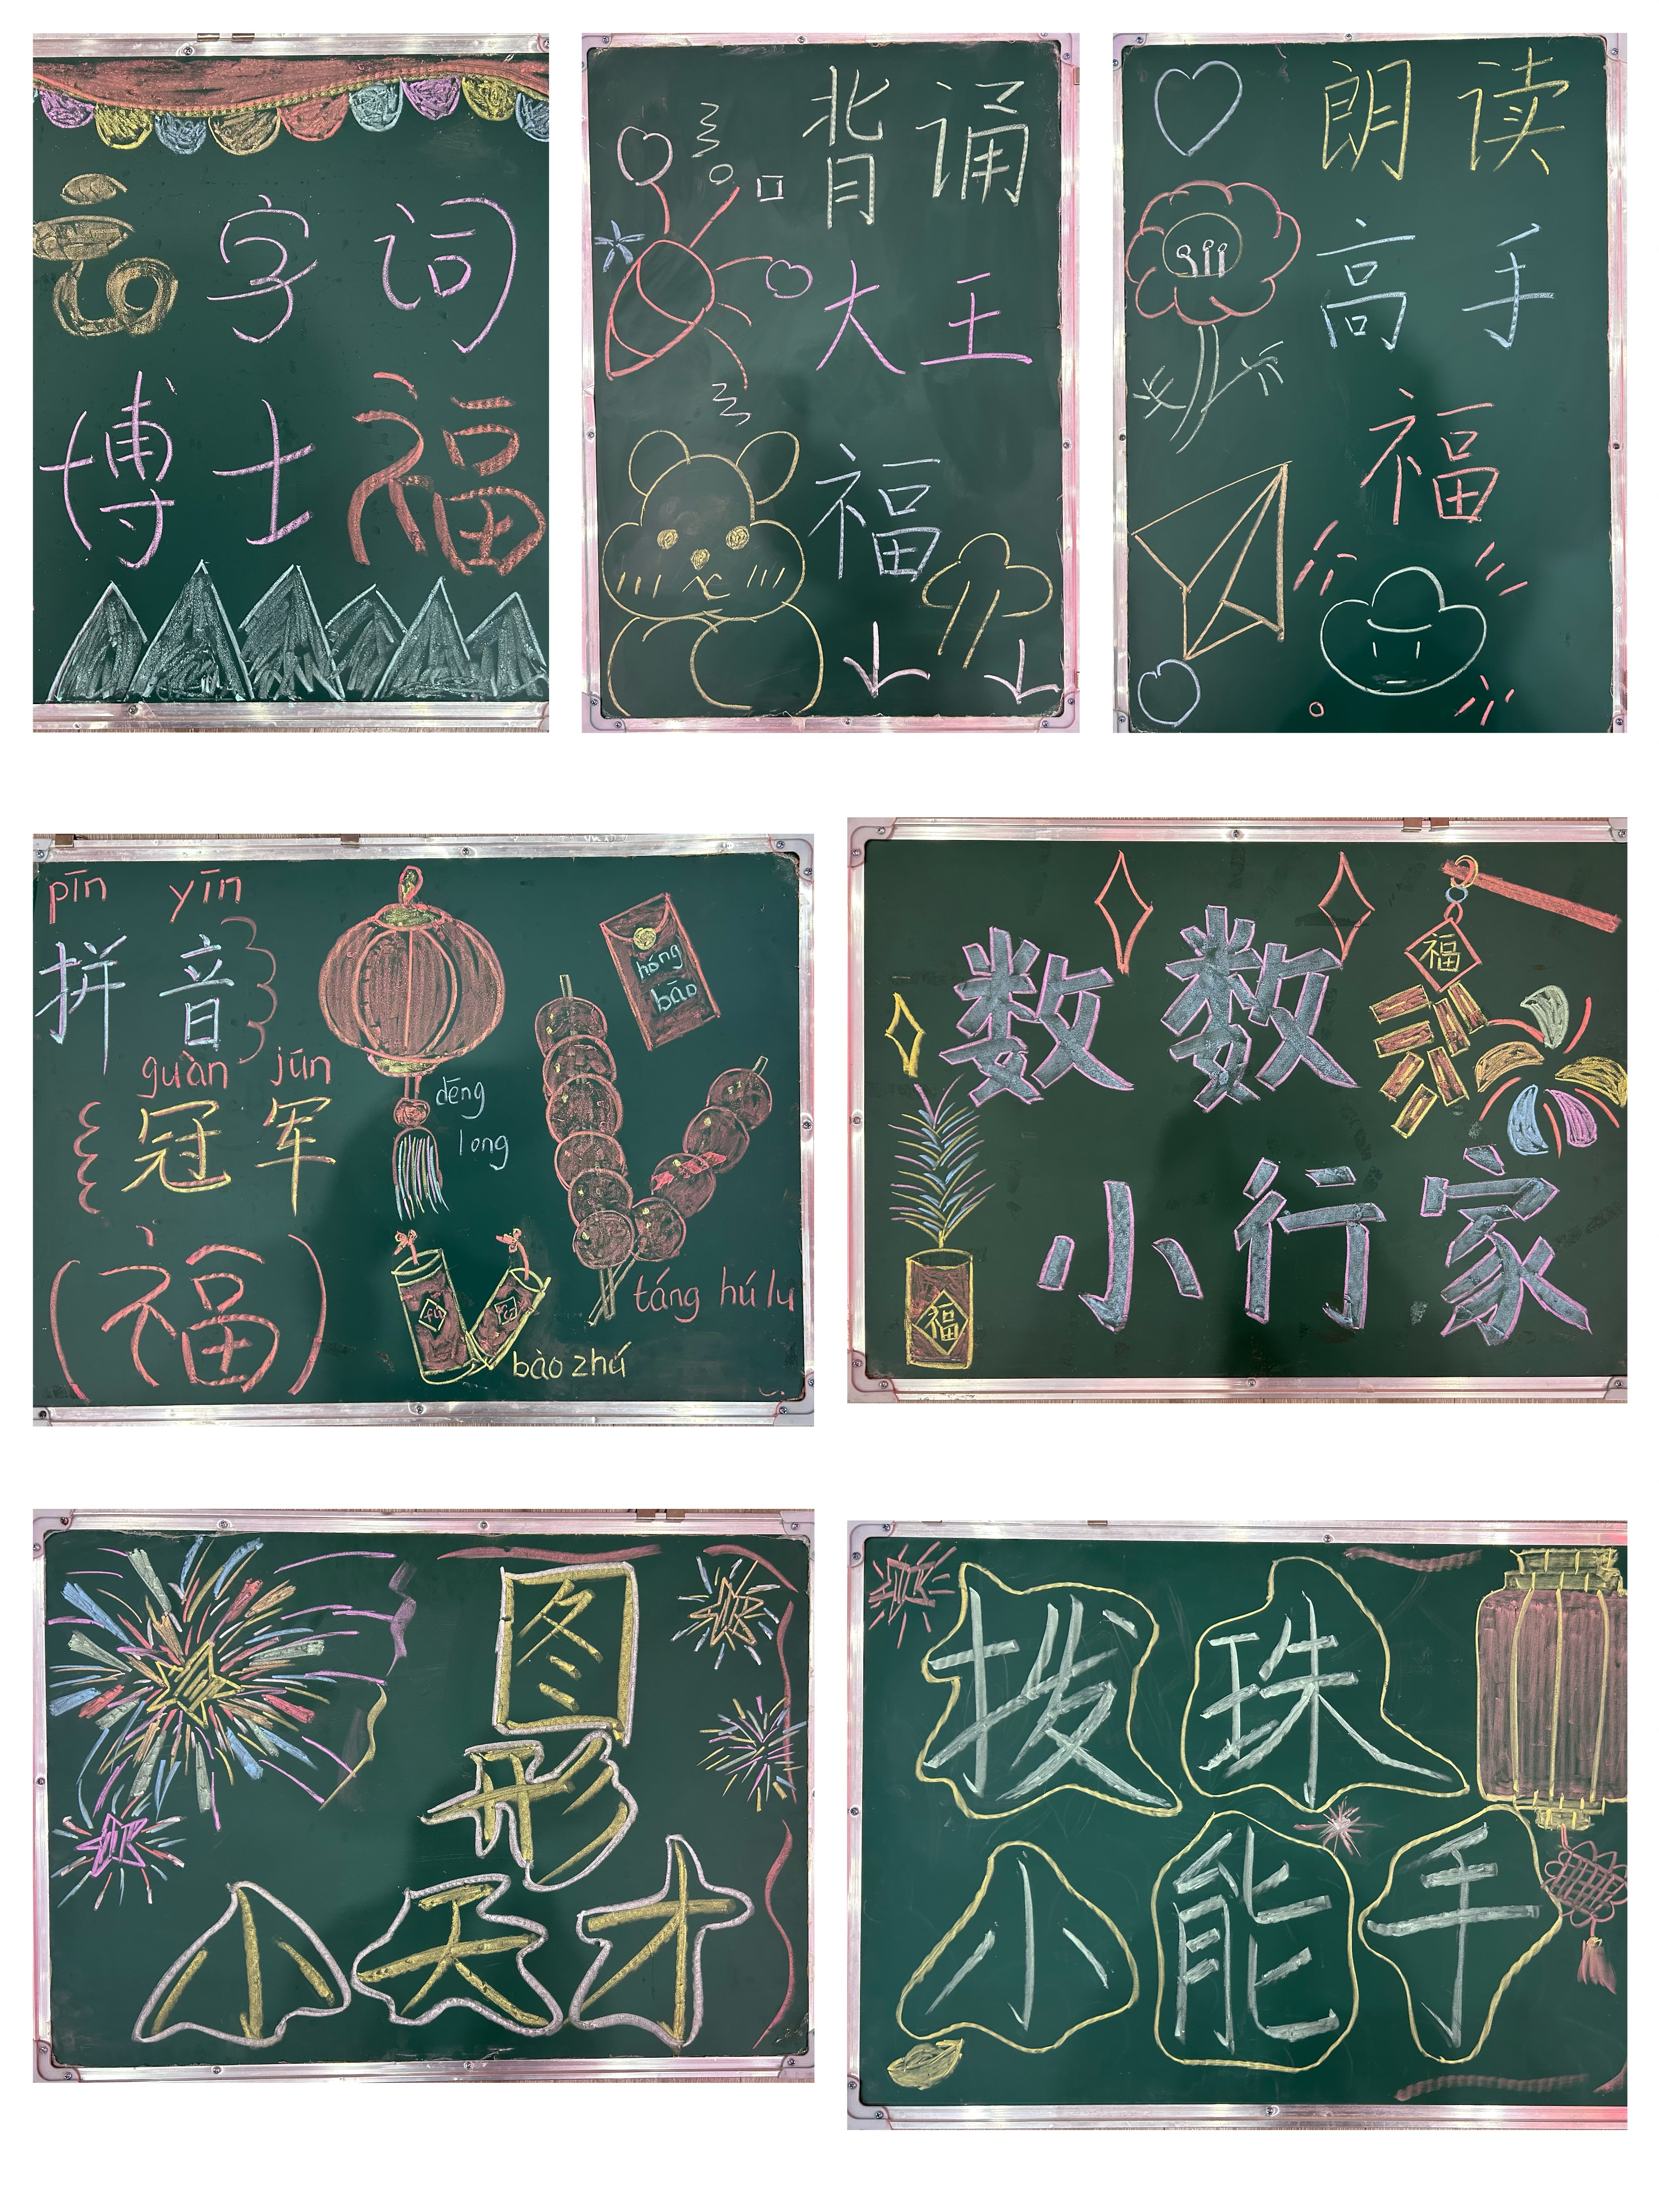 字词
博士福
背诵
大王
福
朗读
高手
福
pīn yīn
拼音
guàn jūn
冠军
(福)
dēng
long
hóng
bāo
táng hú lu
bào zhú
数数
小行家
福
福
图
形
小天才
拨珠
小能手